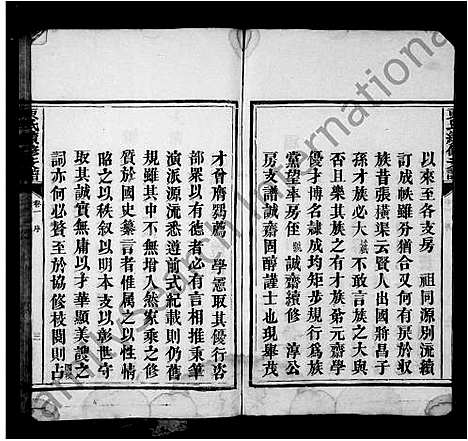 以來至各支房 祖同源別流續
訂成帙雖分猶合又何有戾於收
族昔張橫渠云賢人出國將昌于
孫才族必大 不敢言族之大與
否且樂其族之有才族弟元齋學
優才博名隸成均矩步規行為族
黨望率房侄 誠齋續修 淳公
房支譜誠齋固醇謹士也現舉茂
才會膺鶚薦 學憲取其優行咨
部眾以有德者必有言相推秉筆
演派源流悉遵前式紀載則仍舊
規雖其中不無增入然家乘之修
質於國史纂言者惟屬之以性情
昭之以秩叙以明本也彰世守
取其誠實無庸以才華顯美謏之
詞亦何必贅至於協修枝問則占
卷一 序
三